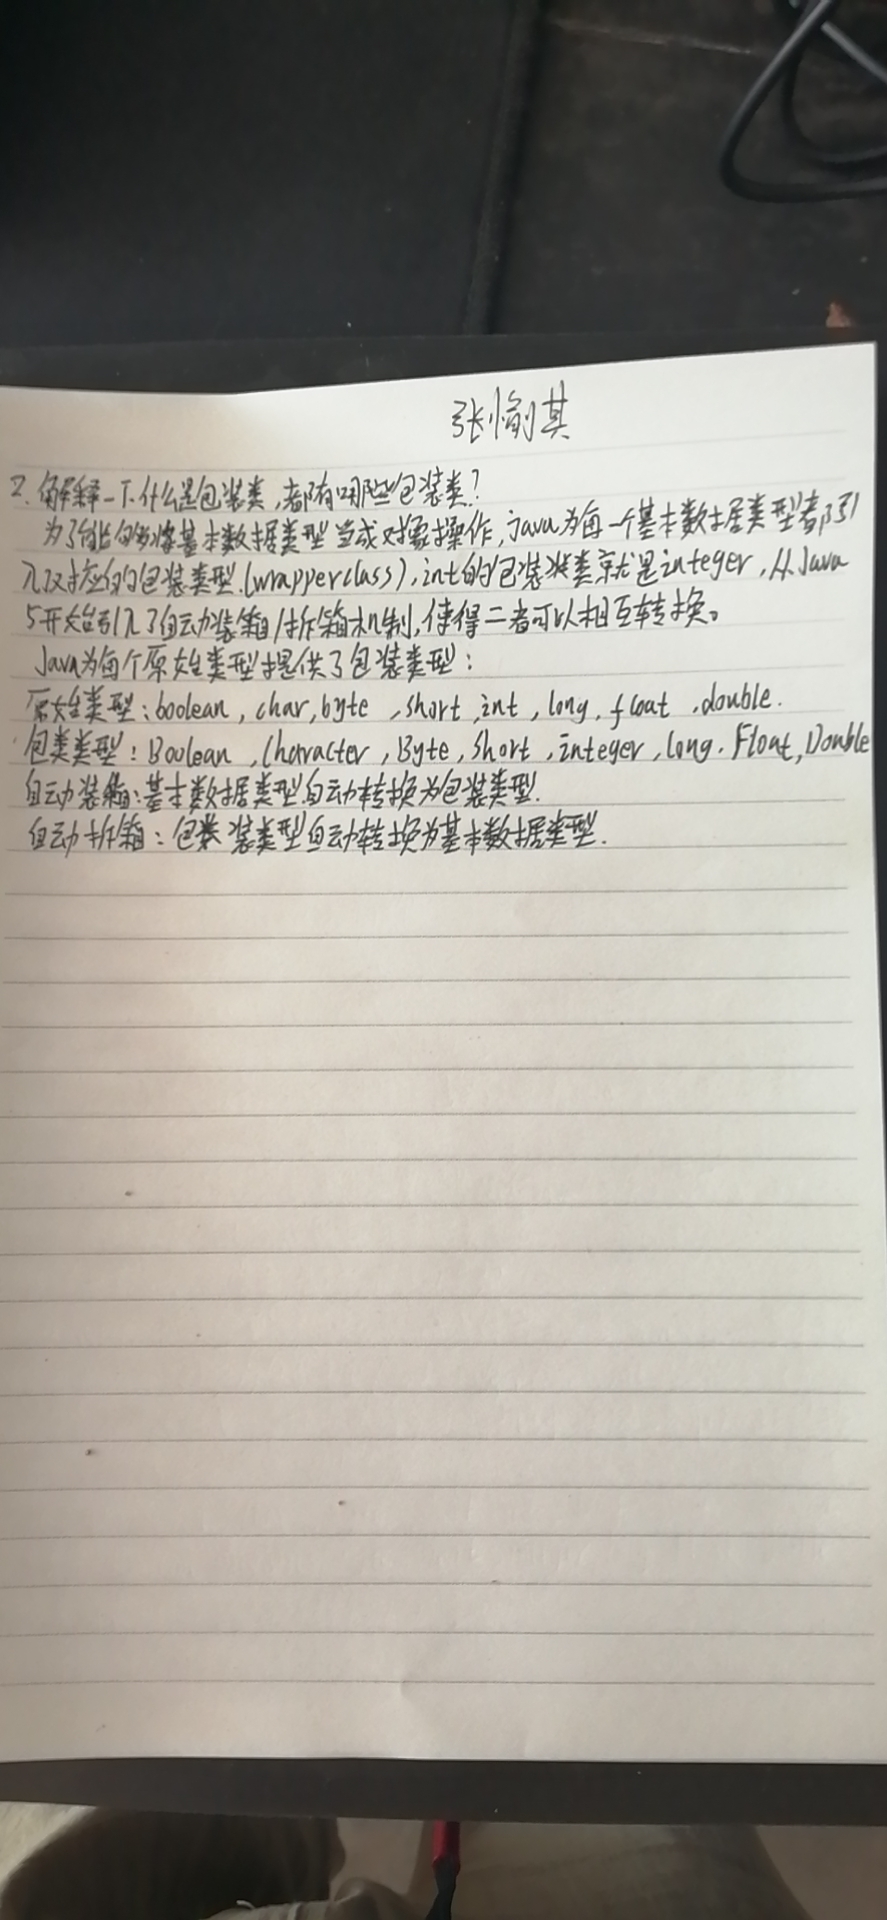 张愉其
2. 解释一下什么是包装类,都有哪些包装类?
为了能够将基本数据类型当成对象操作,java为每一个基本数据类型都引
入对应的包装类型.(wrapperclass),int的包装类就是integer,从Java
5开始引入了自动装箱/拆箱机制,使得二者可以相互转换。
Java为每个原始类型提供了包装类型:
原始类型:boolean,char,byte,short,int,long,float,double.
包类类型:Boolean,Character,Byte,Short,integer,Long,Float,Double
自动装箱:基本数据类型自动转换为包装类型.
自动拆箱:包装类型自动转换为基本数据类型.